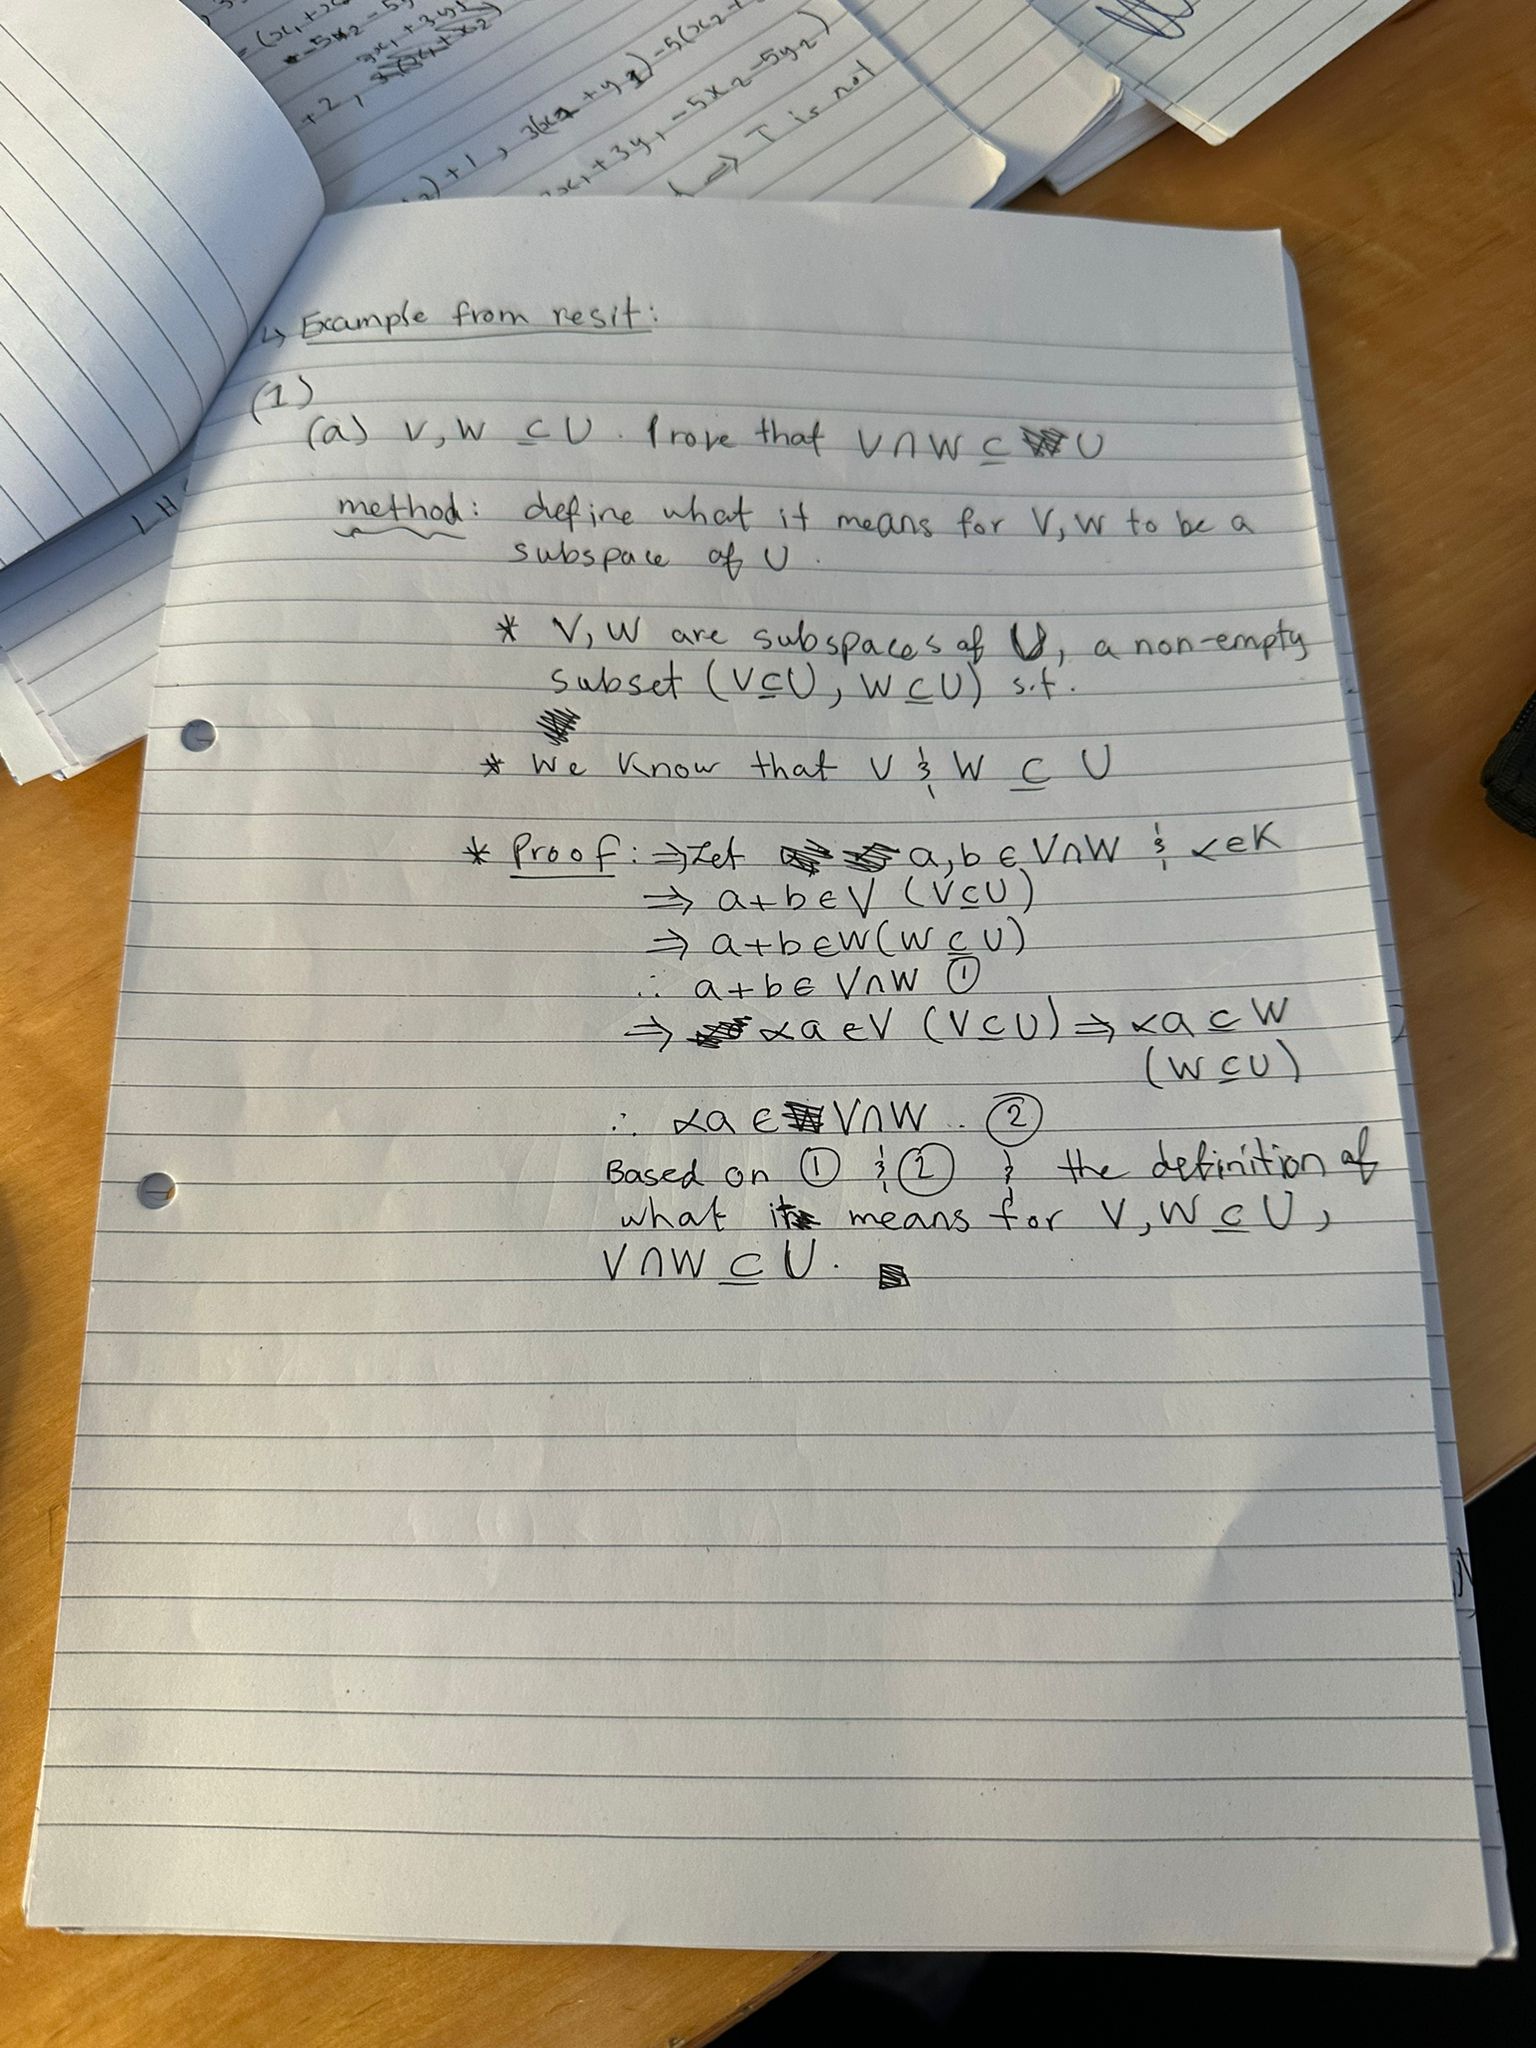 + 2,
) + 1 , 3(x2 + y2) - 5(x2 +
x1 + 3y1 - 5x2 - 5y2)
⇒ T is not
LH
↳ Example from resit:
(1)
(a) V, W ⊆ U . Prove that V∩W ⊆ U
method: define what it means for V, W to be a
subspace of U .
* V, W are subspaces of U, a non-empty
subset (V⊆U, W⊆U) s.t.
* We know that V & W ⊆ U
* Proof: ⇒ Let a, b ∈ V∩W & α∈K
⇒ a+b ∈ V (V⊆U)
⇒ a+b ∈ W (W⊆U)
∴ a+b ∈ V∩W ①
⇒ αa ∈ V (V⊆U) ⇒ αa ⊂ W
(W⊆U)
∴ αa ∈ V∩W .. ②
Based on ① & ② & the definition of
what it means for V, W ⊆ U,
V∩W ⊆ U.